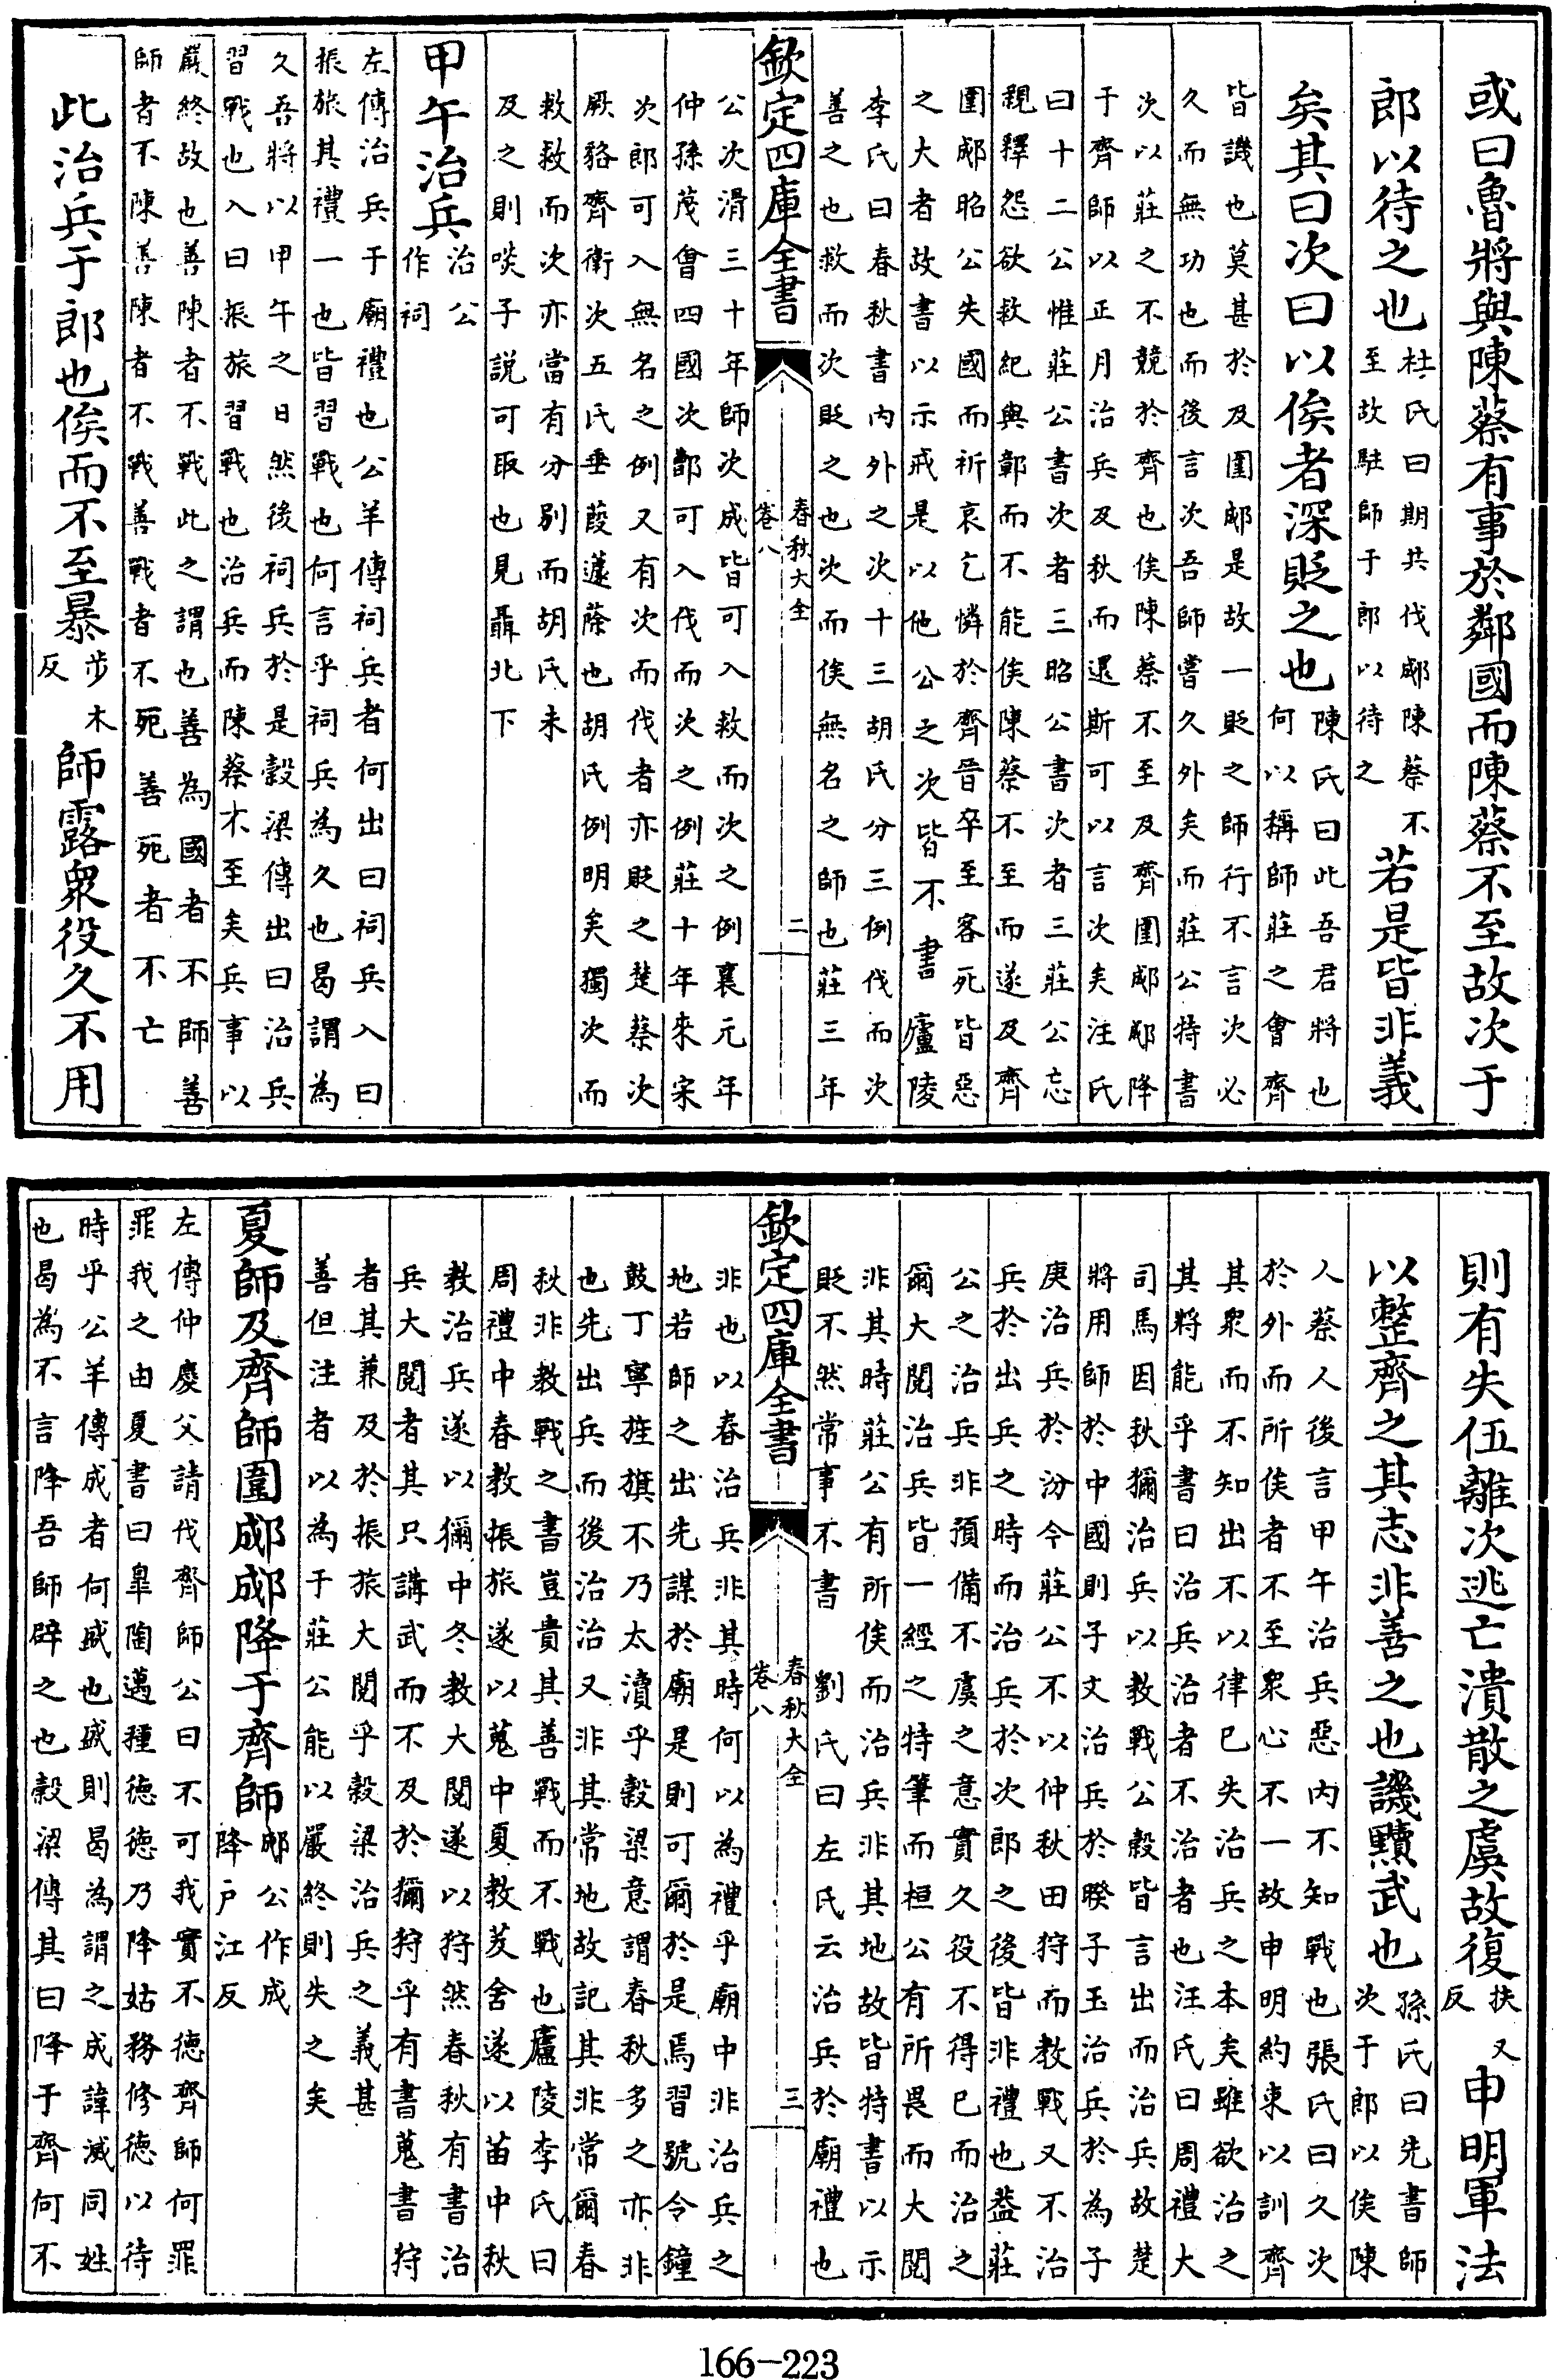 或曰魯將與陳蔡有事於鄰國而陳蔡不至故次于
郎以待之也杜氏曰期共伐郕陳蔡不
至故駐師于郎以待之若是皆非義
矣其曰次曰以俟者深貶之也陳氏曰此吾君將也
何以稱師莊之會齊
皆譏也莫甚於及圍郕是故一貶之師行不言次必
久而無功也而後言次吾師嘗久外矣而莊公特書
次以莊之不競於齊也俟陳蔡不至及齊圍郕郕降
于齊師以正月治兵及秋而還斯可以言次矣汪氏
曰十二公惟莊公書次者三昭公書次者三莊公忘
親釋怨欲救紀與鄣而不能俟陳蔡不至而遂及齊
圍郕昭公失國而祈哀乞憐於齊晉卒至客死皆惡
之大者故書以示戒是以他公之次皆不書廬陵
李氏曰春秋書內外之次十三胡氏分三例伐而次
善之也救而次貶之也次而俟無名之師也莊三年
欽定四庫全書 春秋大全
卷八 二
公次滑三十年師次成皆可入救而次之例襄元年
仲孫蔑會四國次鄫可入伐而次之例莊十年來宋
次郎可入無名之例又有次而伐者亦貶之楚蔡次
厥貉齊衛次五氏垂葭蘧蒢也胡氏例明矣獨次而
救救而次亦當有分別而胡氏未
及之則啖子說可取也見聶北下
甲午治兵治公
作祠
左傳治兵于廟禮也公羊傳祠兵者何出曰祠兵入曰
振旅其禮一也皆習戰也何言乎祠兵為久也曷謂為
久吾將以甲午之日然後祠兵於是穀梁傳出曰治兵
習戰也入曰振旅習戰也治兵而陳蔡不至矣兵事以
嚴終故也善陳者不戰此之謂也善為國者不師善
師者不陳善陳者不戰善戰者不死善死者不亡
此治兵于郎也俟而不至暴步木
反師露衆役久不用
則有失伍離次逃亡潰散之虞故復扶又
反申明軍法
以整齊之其志非善之也譏黷武也孫氏曰先書師
次于郎以俟陳
人蔡人後言甲午治兵惡內不知戰也張氏曰久次
於外而所俟者不至衆心不一故申明約束以訓齊
其衆而不知出不以律已失治兵之本矣雖欲治之
其將能乎書曰治兵治者不治者也汪氏曰周禮大
司馬因秋獮治兵以教戰公穀皆言出而治兵故楚
將用師於中國則子文治兵於暌子玉治兵於為子
庚治兵於汾今莊公不以仲秋田狩而教戰又不治
兵於出兵之時而治兵於次郎之後皆非禮也蓋莊
公之治兵非預備不虞之意實久役不得已而治之
爾大閱治兵皆一經之特筆而桓公有所畏而大閱
非其時莊公有所俟而治兵非其地故皆特書以示
貶不然常事不書 劉氏曰左氏云治兵於廟禮也
欽定四庫全書 春秋大全
卷八 三
非也以春治兵非其時何以為禮乎廟中非治兵之
地若師之出先謀於廟是則可爾於是焉習號令鐘
鼓丁寧旌旗不乃太瀆乎穀梁意謂春秋多之亦非
也先出兵而後治治又非其常地故記其非常爾春
秋非教戰之書豈貴其善戰而不戰也廬陵李氏曰
周禮中春教振旅遂以蒐中夏教茇舍遂以苗中秋
教治兵遂以獮中冬教大閱遂以狩然春秋有書治
兵大閱者其只講武而不及於獮狩乎有書蒐書狩
者其兼及於振旅大閱乎穀梁治兵之義甚
善但注者以為于莊公能以嚴終則失之矣
夏師及齊師圍郕郕降于齊師郕公作成
降户江反
左傳仲慶父請伐齊師公曰不可我實不德齊師何罪
罪我之由夏書曰臯陶邁種德德乃降姑務修德以待
時乎公羊傳成者何盛也盛則曷為謂之成諱滅同姓
也曷為不言降吾師辟之也穀梁傳其曰降于齊何不
166-223